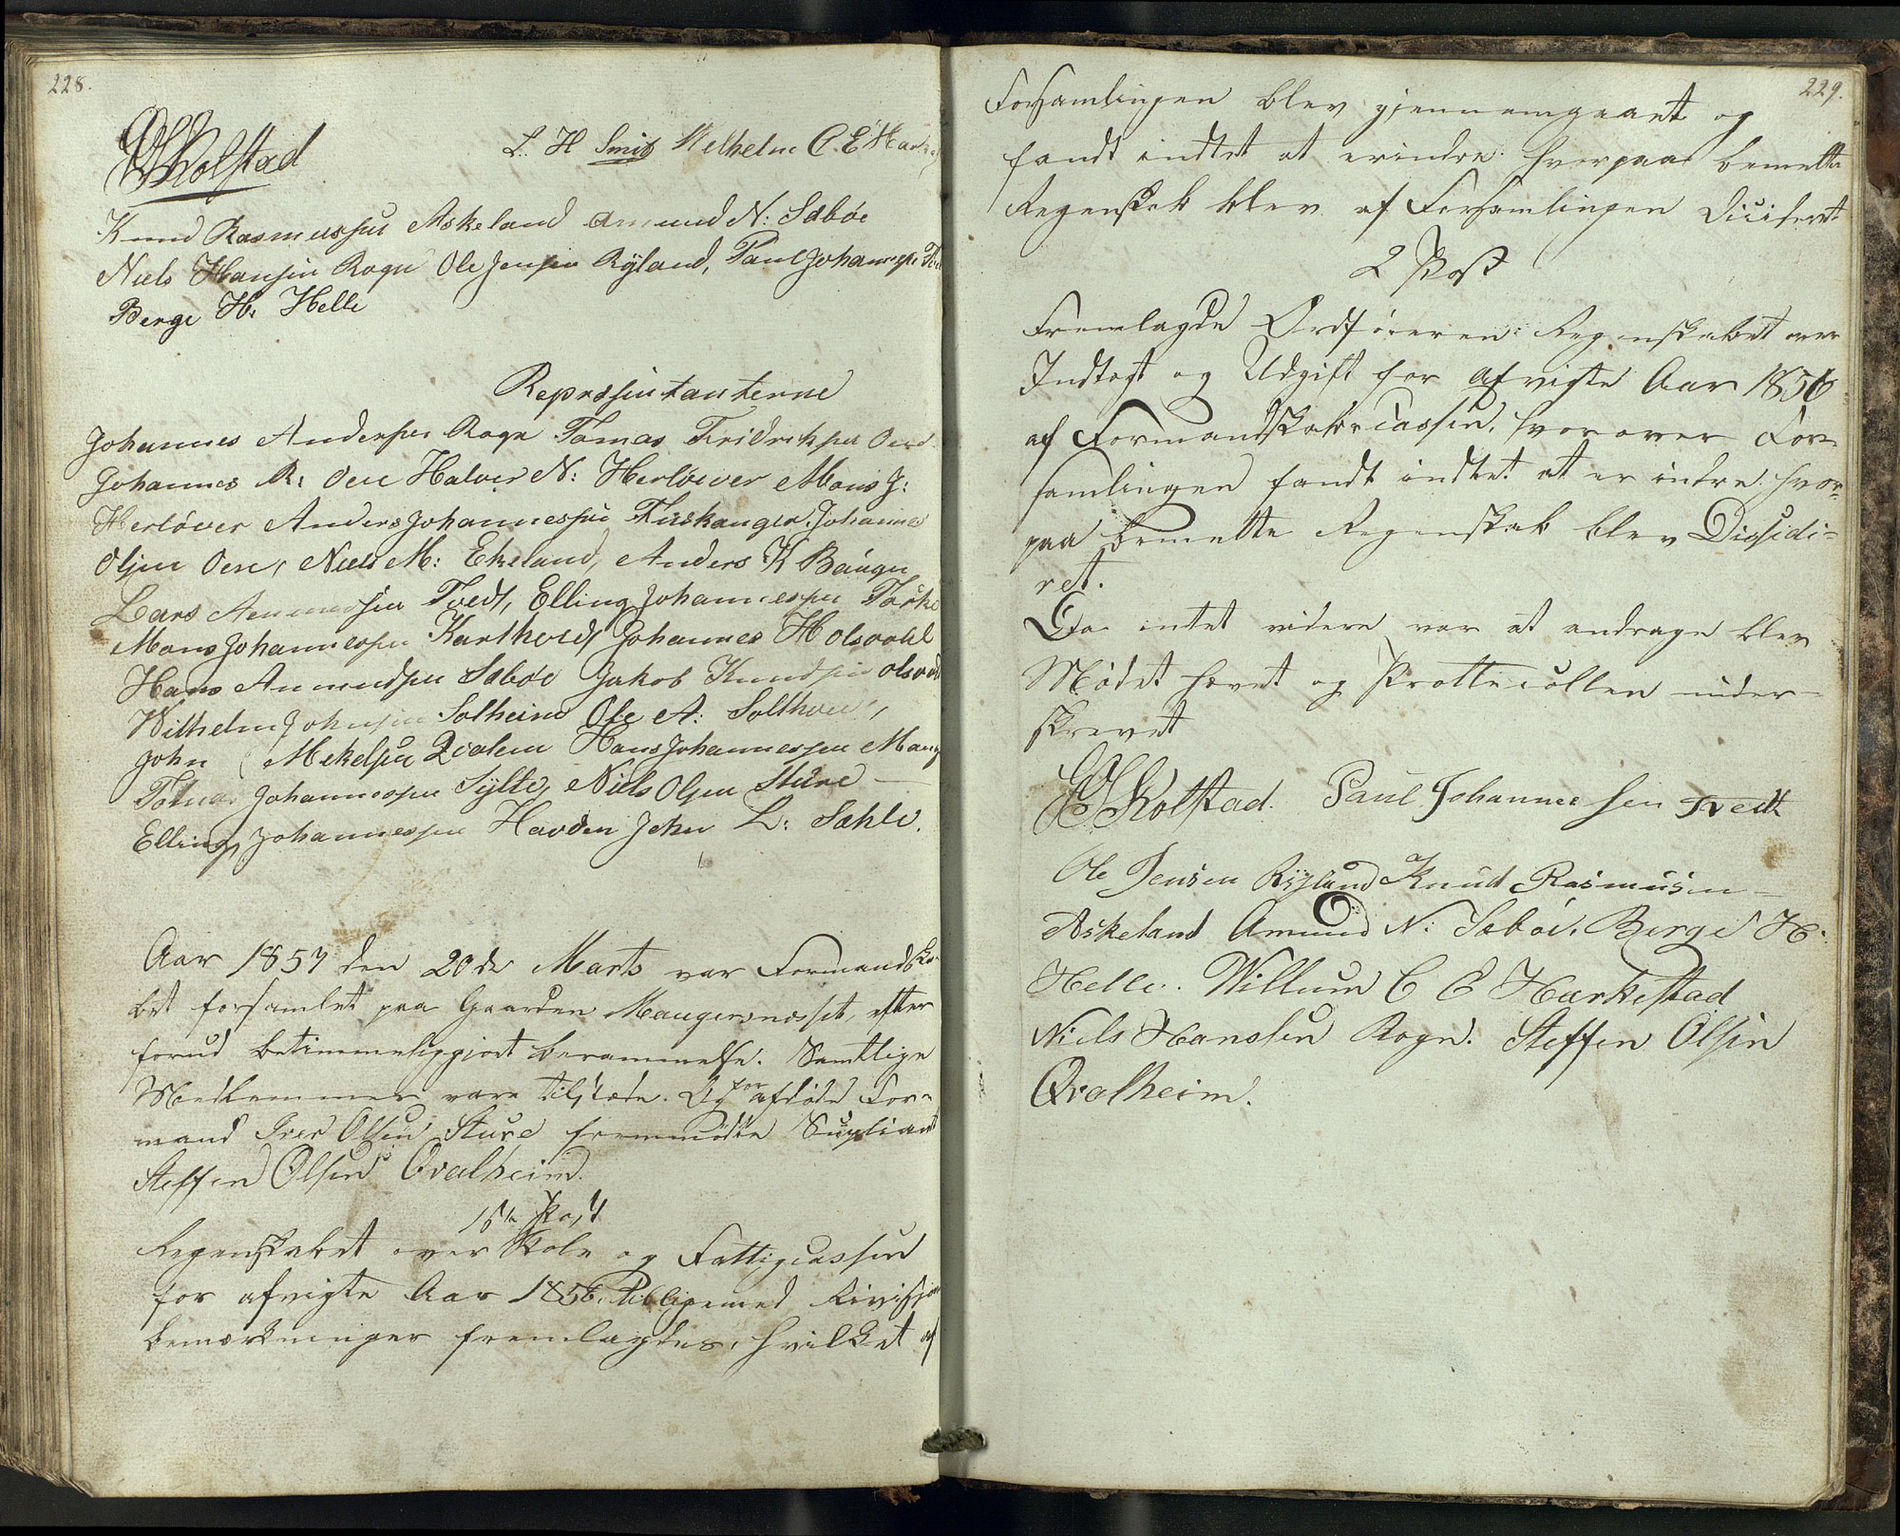 228.
Skolstad
L. H Smit Welhelm C. E Hark
Knud Rasmussen Askeland Amund N: Sæbøe
Niels Hansen Rogn Ole Jensen Ryland, Paul Johannessen
Berge H: Helle
Repræsentanterne
Johannes Andersen Rogn Tomas Fridrichsen Oen
Johannes R: Oen Halver N: Herløver Mons J:
Herløver Anders Johannessen Fieskanger Johannes
Olsen Oen, Niels M: Ekeland, Anders K Bauge
Lars Amundsen Tvedt, Elling Johannessen
Mons Johannessen Kartheved Johannes H olsvold
Hans Amundsen Sæbøe Jakob Knudsen olsvold
Wilhelm Johnsen Solheim Ole A: Soltheved,
John Mekelsen Qvalem Hans Johannessen Mang
Tomas Johannessen Sylte, Niels Olsen Sture
Elling Johannessen Havden John L: Sæhle.
Aar 1857 den 20de Marts var Formandska
bet forsamlet paa Gaarden Maugersnæsset, efter
forud bekjendtgjort berammelse. Samtlige
Medlemmer vare tilstæde. Og for afdøde For-
mand Iver Olsen Sture fremmødte Supliant
Steffen Olsen Qvalheim.
1ste Post
Regenskabet over Skole og Fattigcassen
for afvigte Aar 1856. tilligemed Revisjons
bemærkninger fremlagdes, hvilket af
229.
Forsamlingen blev gjennemgaaet og
fandt indtet at erindre. hvorpaa bemelte
Regenskab blev af Forsamlingen Diciferet
2 Post
Fremlagde Ordføreren: Regenskabet over
Indtægt og Udgift for afvigte Aar 1856
af Formandskabscassen, hvorover For-
samlingen fandt indtet at erindre. hvor-
paa bemelte Regenskab blev Dicsidi-
ret.
Da intet videre var at andrage blev
Mødet hævet og Prottecollen under-
skrevet
Skolstad. Paul Johannessen Tvedt
Ole Jensen Ryland Knud Rasmusen
Askeland Amund N: Sæbøe. Berge H.
Helle. Willum C E Harkestad
Niels Hanssen Rogn. Steffen Olsen
Qvalheim.